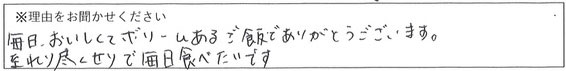 ※理由をお聞かせください
毎日、おいしくてボリームあるご飯でありがとうございます。
至れり尽くせりで毎日食べたいです